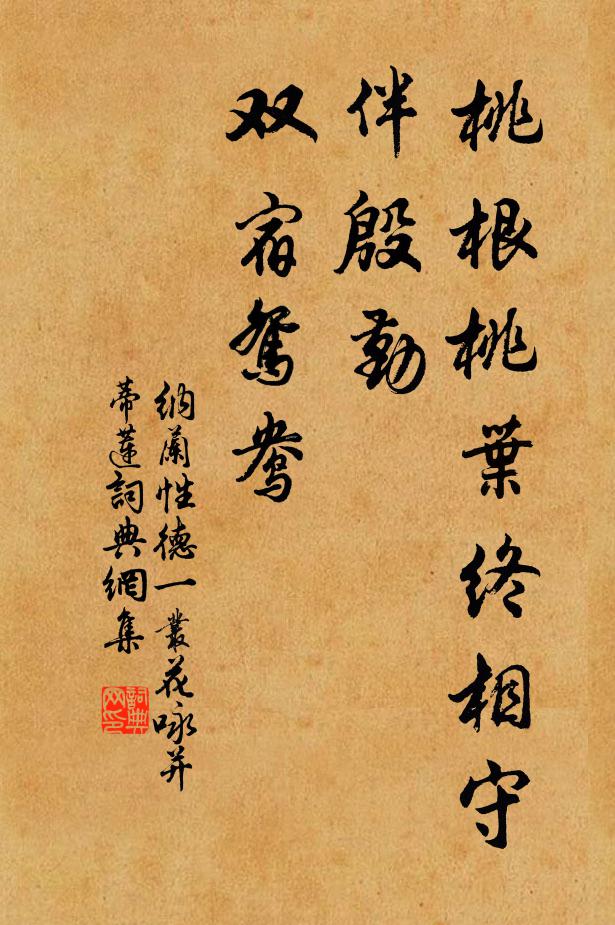 桃根桃葉终相守
伴殷勤
双宿鸳鸯
納蘭性德一叢花咏并
蒂蓮詞典網集
詞典
网印